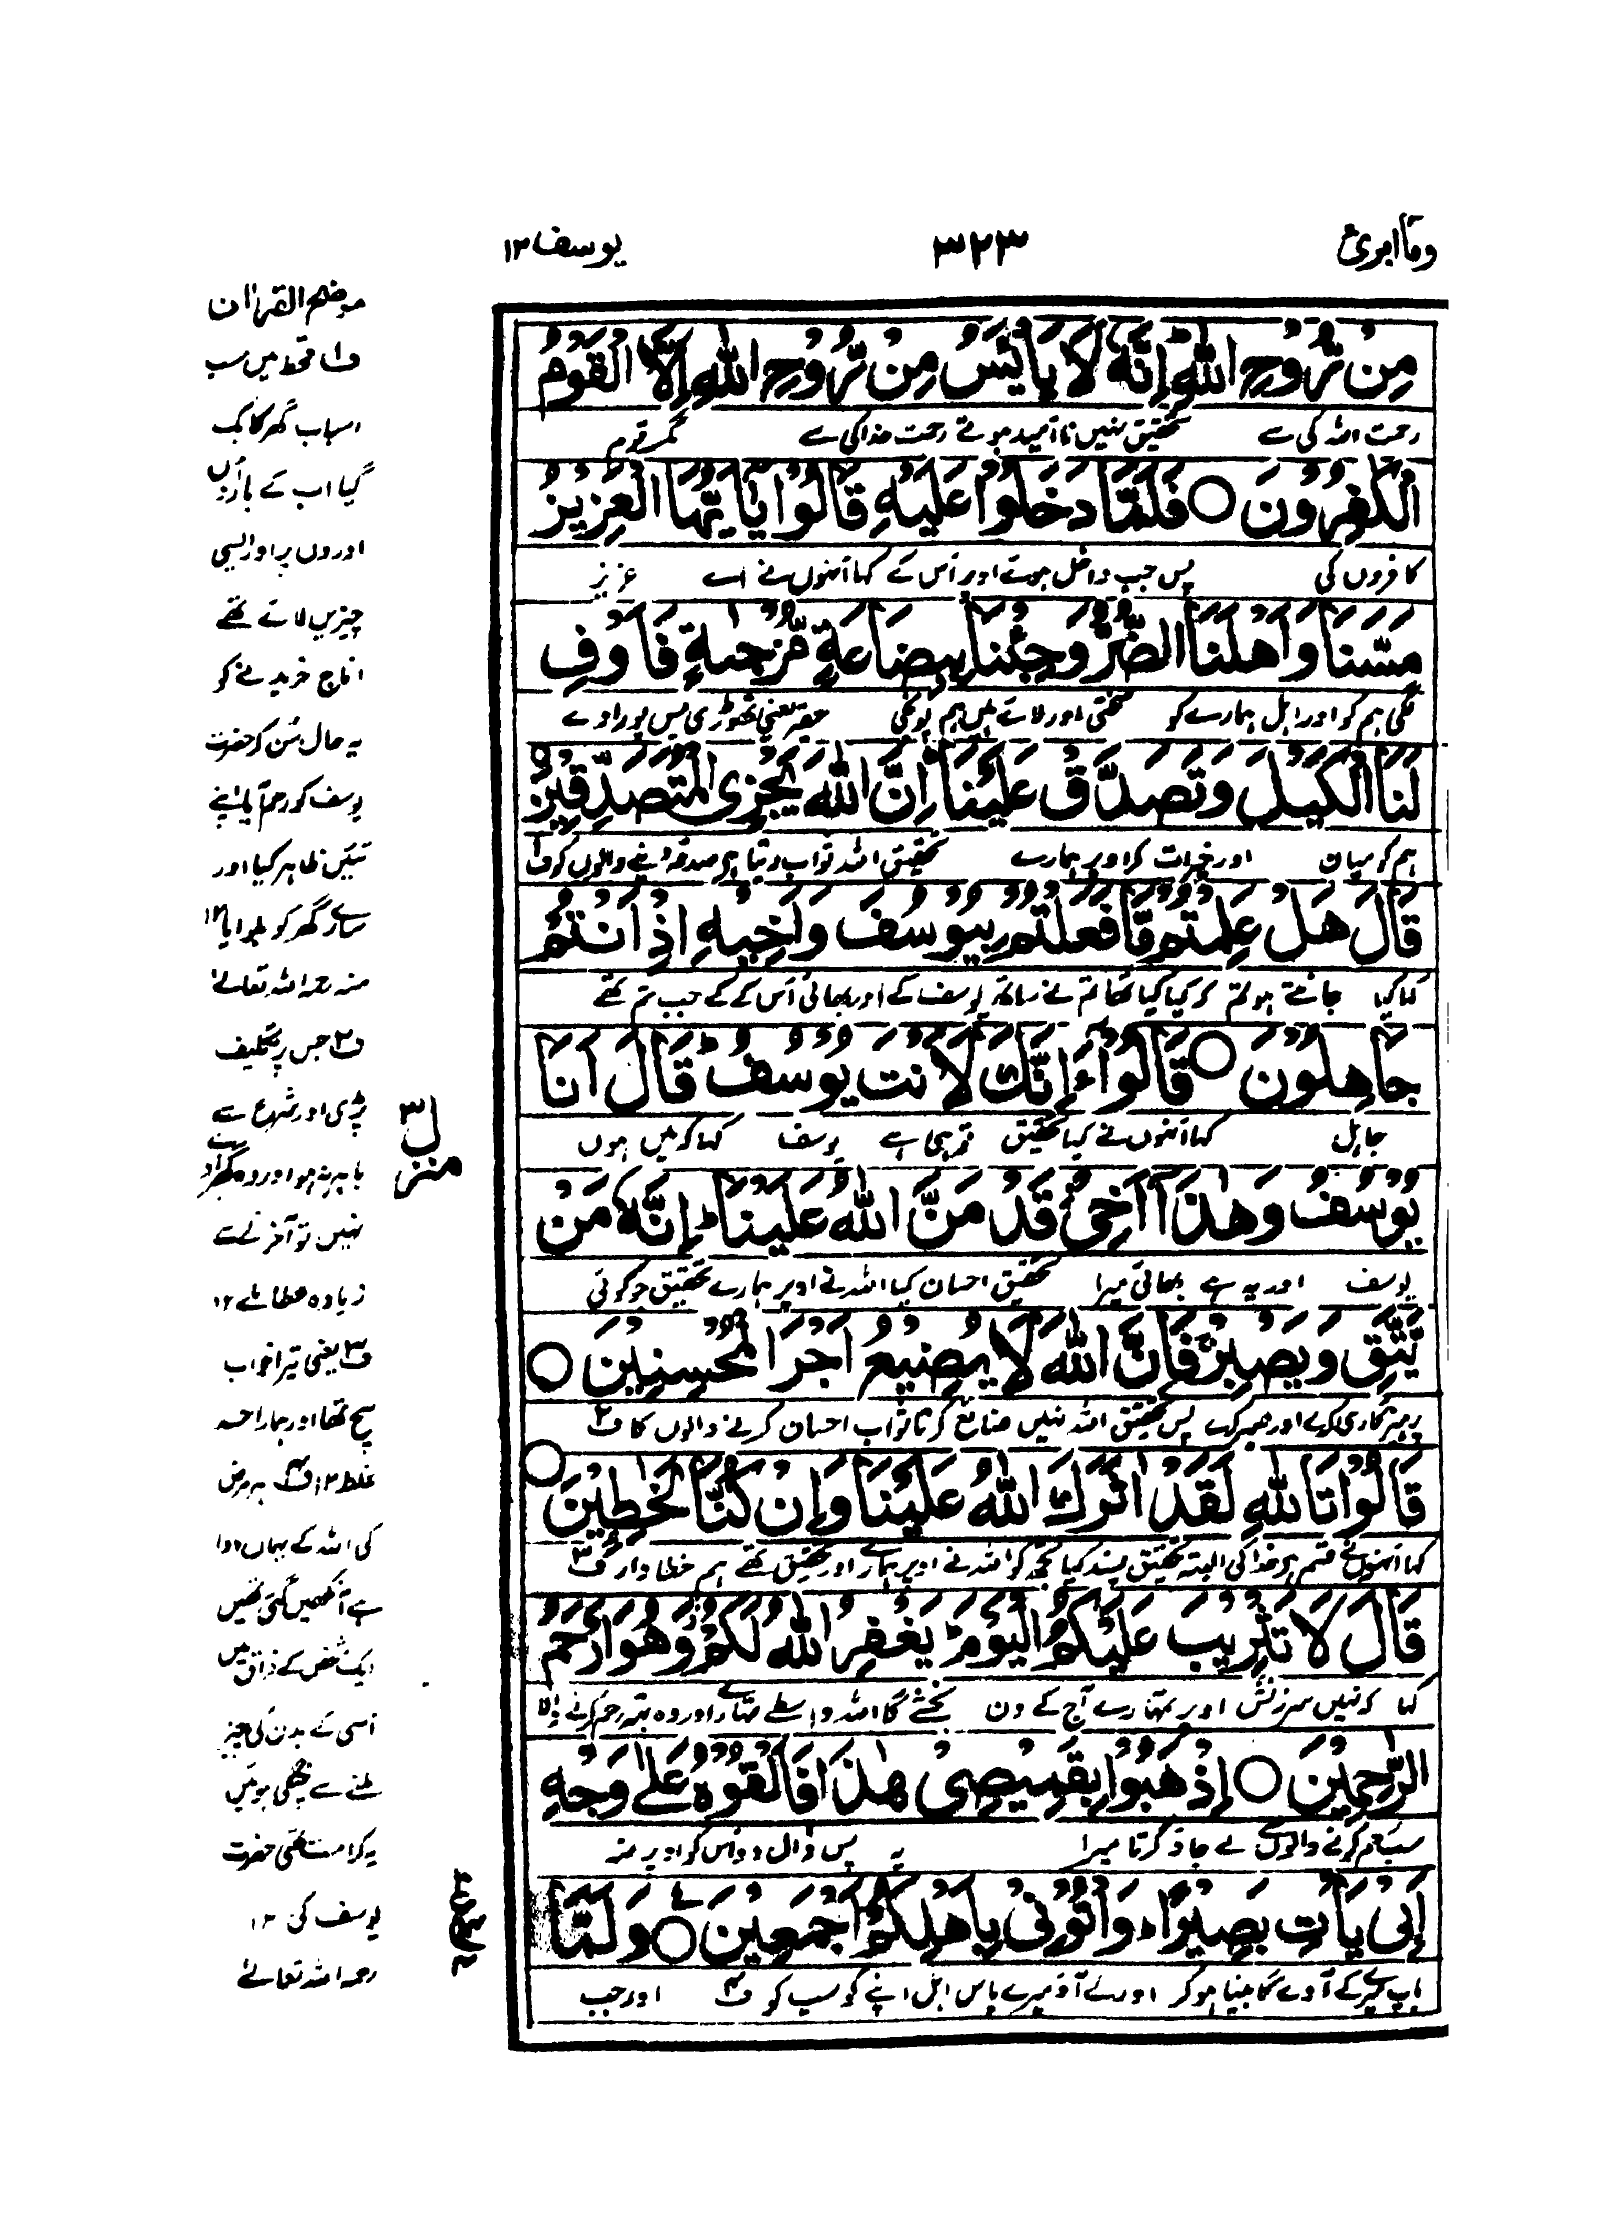 ومآ ابرئ
٣٢٣
يوسف ١٢
مِنْ رَّوْحِ اللّٰهِ ؕ اِنَّهٗ لَا يَايْـَٔسُ مِنْ رَّوْحِ اللّٰهِ اِلَّا الْقَوْمُ
رحمت اللہ کی سے تحقیق نہیں نا اُمید ہوتے رحمت خدا کی سے مگر قوم
الْكٰفِرُوْنَ ○ فَلَمَّا دَخَلُوْا عَلَيْهِ قَالُوْا يٰۤاَيُّهَا الْعَزِيْزُ
کافروں کی پس جب داخل ہوئے اوپر اُس کے کہا اُنہوں نے اے عزیز
مَسَّنَا وَاَهْلَنَا الضُّرُّ وَجِئْنَا بِبِضَاعَةٍ مُّزْجٰىةٍ فَاَوْفِ
لگی ہم کو اور اہل ہمارے کو سختی اور لائے ہیں ہم پونجی حقیر یعنی تھوڑی پس پورا دے
لَنَا الْكَيْلَ وَتَصَدَّقْ عَلَيْنَا ؕ اِنَّ اللّٰهَ يَجْزِى الْمُتَصَدِّقِيْنَ
ہم کو میان اور خیرات کر اوپر ہمارے تحقیق اللہ ثواب دیتا ہے صدقہ دینے والوں کو ف١
قَالَ هَلْ عَلِمْتُمْ مَّا فَعَلْتُمْ بِيُوْسُفَ وَاَخِيْهِ اِذْ اَنْتُمْ
کہا کیا جانتے ہو تم کہ کیا کیا تھا تم نے ساتھ یوسف کے اور بھائی اُس کے کے جب تم تھے
جَاهِلُوْنَ ○ قَالُوْۤا ءَاِنَّكَ لَاَنْتَ يُوْسُفُ ؕ قَالَ اَنَا
جاہل کہا اُنہوں نے کیا تحقیق تم ہی ہے یوسف کہا کہ میں ہوں
يُوْسُفُ وَهٰذَاۤ اَخِىْ قَدْ مَنَّ اللّٰهُ عَلَيْنَا ؕ اِنَّهٗ مَنْ
یوسف اور یہ ہے بھائی میرا تحقیق احسان کیا اللہ نے اوپر ہمارے تحقیق جو کوئی
يَّتَّقِ وَيَصْبِرْ فَاِنَّ اللّٰهَ لَا يُضِيْعُ اَجْرَ الْمُحْسِنِيْنَ ○
پرہیزگاری کرے اور صبر کرے پس تحقیق اللہ نہیں ضایع کرتا ثواب احسان کرنے والوں کا ف٢
قَالُوْا تَاللّٰهِ لَقَدْ اٰثَرَكَ اللّٰهُ عَلَيْنَا وَاِنْ كُنَّا لَخٰطِـِٕيْنَ ○
کہا اُنہوں نے قسم ہے خدا کی البتہ تحقیق پسند کیا تجھ کو اللہ نے اوپر ہمارے اور تحقیق تھے ہم خطا وار ف٣
قَالَ لَا تَثْرِيْبَ عَلَيْكُمُ الْيَوْمَ ؕ يَغْفِرُ اللّٰهُ لَكُمْ وَهُوَ اَرْحَمُ
کہا کہ نہیں سرزنش اوپر تمہارے آج کے دن بخشے گا اللہ واسطے تمہارے اور وہ بہت رحم کرنے والا
الرّٰحِمِيْنَ ○ اِذْهَبُوْا بِقَمِيْصِىْ هٰذَا فَاَلْقُوْهُ عَلٰى وَجْهِ
سب رحم کرنے والوں سے لے جاؤ کرتا میرا یہ پس ڈال دو اُس کو اوپر منہ
اَبِىْ يَاْتِ بَصِيْرًا ۚ وَاْتُوْنِىْ بِاَهْلِكُمْ اَجْمَعِيْنَ ○ وَلَمَّا
باپ میرے کے آوے گا بینا ہو کر اور لے آؤ میرے پاس اہل اپنے کو سب کو ف٤ اور جب
موضح القرآن
ف١ قحط میں سب
اسباب گھر کا بک
گیا اب کے بار
اوروں پر اور ایسی
چیزیں لائے تھے
اناج خریدنے کو
یہ حال سُن کر حضرت
یوسف کو رحم آیا اپنے
تئیں ظاہر کیا اور
سارے گھر کو بلوایا ١٢
منہ رحمہ اللہ تعالیٰ
ف٢ جس پر تکلیف
پڑی اور شرع سے
باہر نہ ہو اور وہ گھبراوے
نہیں تو آخر بلا سے
زیادہ عطا ملے ١٢
ف٣ یعنی تیرا خواب
سچ تھا اور ہمارا حسد
غلط ١٢ ف٤ ہر مرض
کی اللہ کے یہاں دوا
ہے آنکھیں گئی تھیں
ایک شخص کے فراق میں
اُسی کے بدن کی چیز
ملنے سے چنگی ہوئیں
یہ کرامت تھی حضرت
یوسف کی ١٢
رحمہ اللہ تعالیٰ
منزل ٣